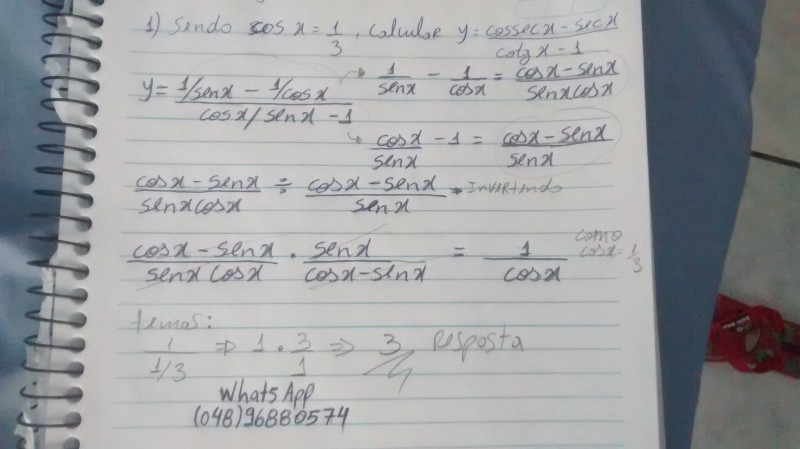 1) Sendo cos x = 1/3, calcular y = cossec x - sec x / cotg x - 1
y = 1/sen x - 1/cos x / cos x/sen x - 1
1/sen x - 1/cos x = cos x - sen x / sen x cos x
cos x / sen x - 1 = cos x - sen x / sen x
cos x - sen x / sen x cos x ÷ cos x - sen x / sen x → Invertendo
cos x - sen x / sen x cos x . sen x / cos x - sen x = 1 / cos x como cos x = 1/3
temos:
1 / 1/3 ⇒ 1 . 3/1 ⇒ 3 Resposta
WhatsApp
(048)96880574